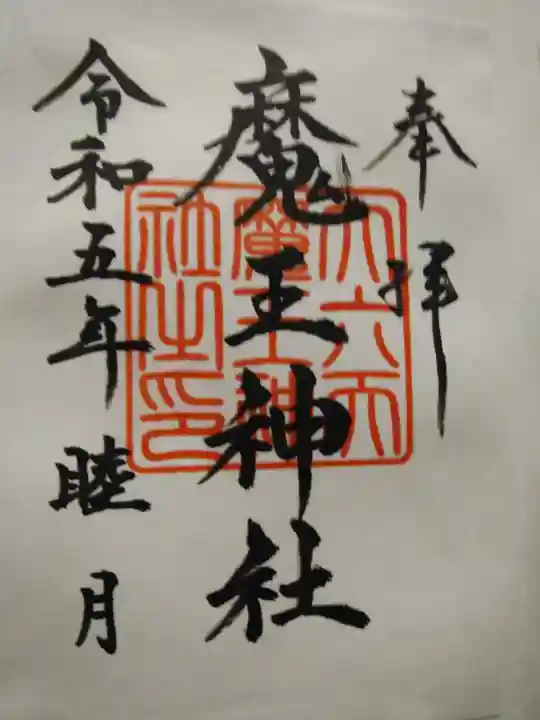 奉拝
魔王神社
令和五年 睦月
大六天
魔王神
社之印